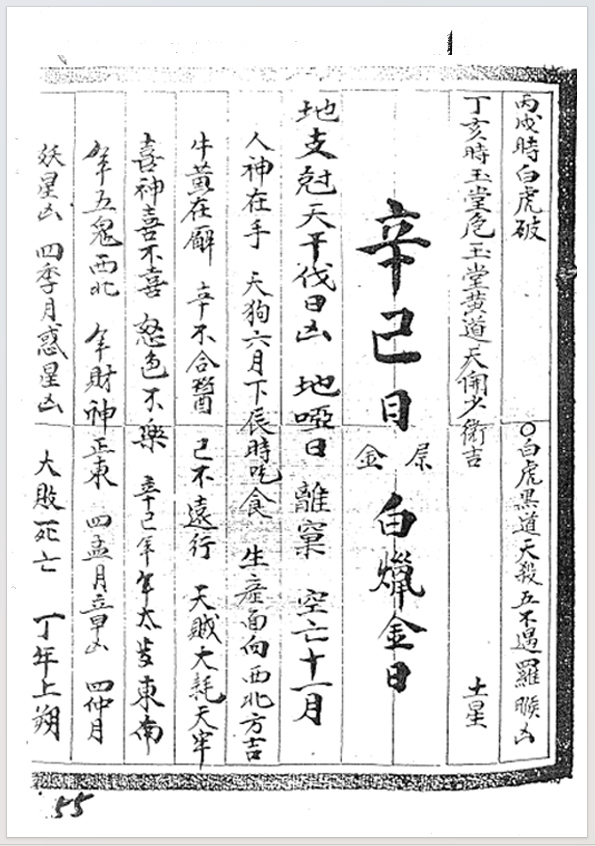 丙戌時白虎破 〇白虎黑道天殺五不遇羅睺凶
丁亥時玉堂危玉堂黃道天開少衛吉 土星
辛巳日 金 白蠟金日
地支尅天干伐日凶 地啞日 離窠 空亡十一月
人神在手 天狗六月下辰時吃食 生產面向西北方吉
牛黃在廨 辛不合醬 巳不遠行 天賊大耗天牢
喜神喜不喜 怒色不樂 辛巳年年太歲東南
年五鬼西北 年財神正東 四孟月 凶 四仲月
妖星凶 四季月惑星凶 大敗死亡 丁年上朔
55